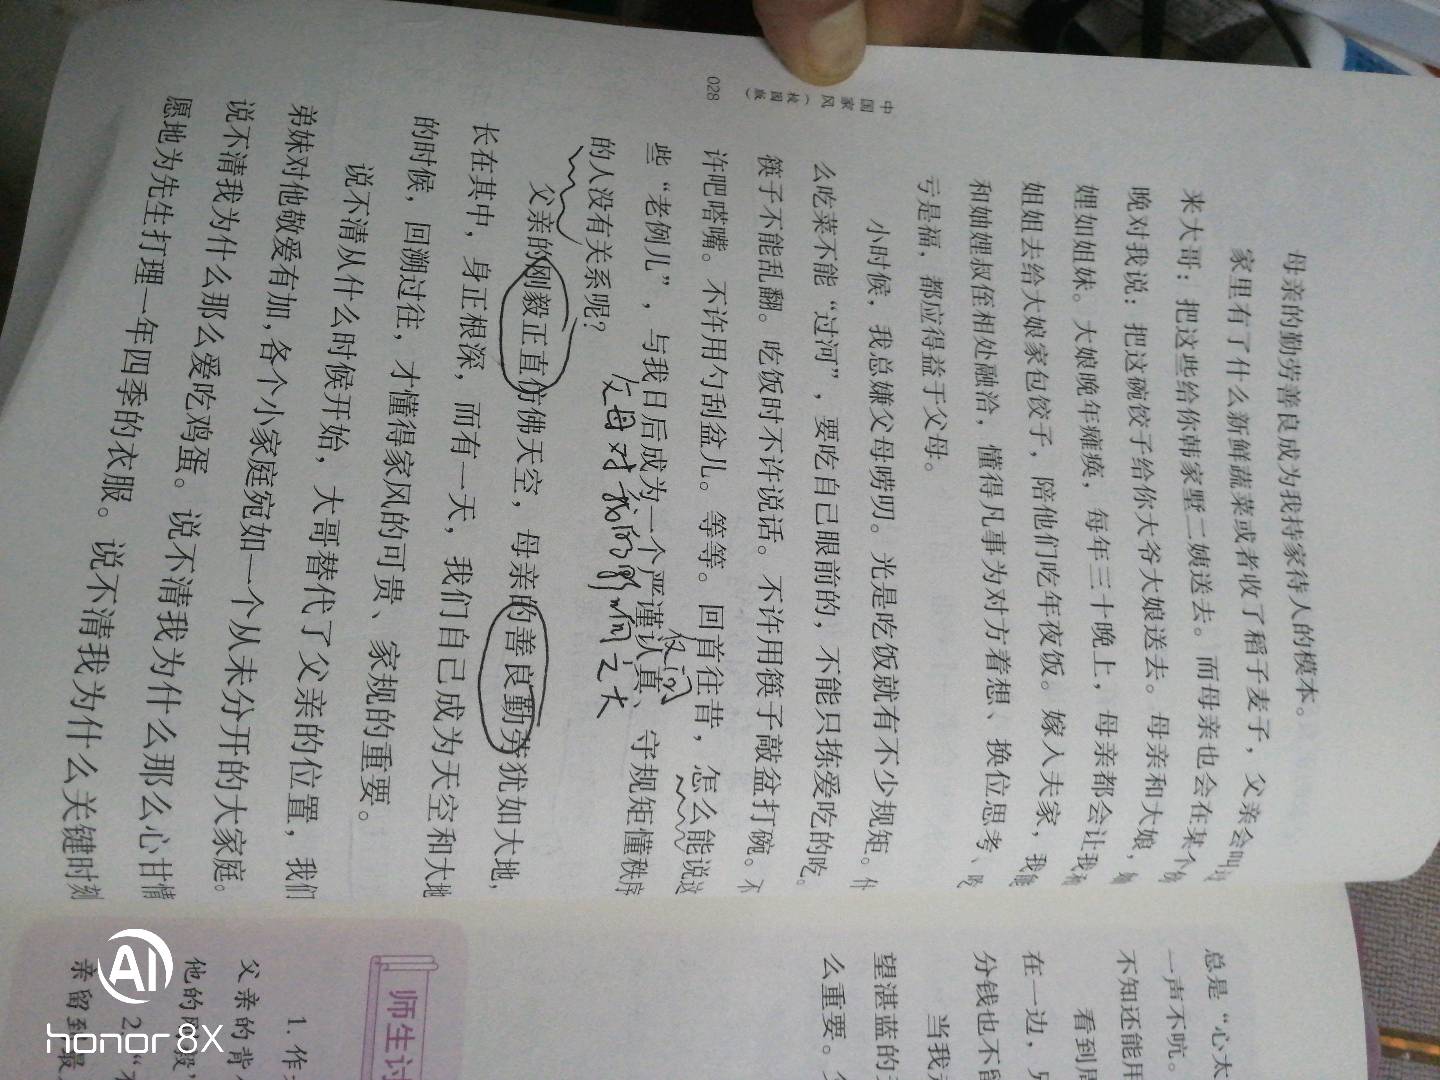 母亲的勤劳善良成为我持家待人的模本。
家里有了什么新鲜蔬菜或者收了稻子麦子，父亲会叫
来大哥：把这些给你韩家墅二姨送去。而母亲也会在某个
晚对我说：把这碗饺子给你大爷大娘送去。母亲和大娘，
娌如姐妹。大娘晚年瘫痪，每年三十晚上，母亲都会让我和
姐姐去给大娘家包饺子，陪他们吃年夜饭。嫁入夫家，我能
和妯娌叔侄相处融洽，懂得凡事为对方着想、换位思考、吃
亏是福，都应得益于父母。
小时候，我总嫌父母唠叨。光是吃饭就有不少规矩。什
么吃菜不能“过河”，要吃自己眼前的，不能只拣爱吃的吃。
筷子不能乱翻。吃饭时不许说话。不许用筷子敲盆打碗。不
许吧嗒嘴。不许用勺刮盆儿。等等。回首往昔，怎么能说这
些“老例儿”，与我日后成为一个严谨认真、守规矩懂秩序
的人没有关系呢？
反问
父母对我的影响之大
父亲的刚毅正直仿佛天空，母亲的善良勤劳犹如大地，
长在其中，身正根深，而有一天，我们自己成为天空和大地
的时候，回溯过往，才懂得家风的可贵、家规的重要。
说不清从什么时候开始，大哥替代了父亲的位置，我们
弟妹对他敬爱有加，各个小家庭宛如一个从未分开的大家庭。
说不清我为什么那么爱吃鸡蛋。说不清我为什么那么心甘情
愿地为先生打理一年四季的衣服。说不清我为什么关键时刻
中国家风（校园版）
028
总是“心太
一声不吭。
不知还能用
看到周
在一边，兄
分钱也不留
当我
望湛蓝的天
么重要。
师生讨
1. 作
父亲的背
他的刚毅，
2.
亲留到
AI
honor 8X